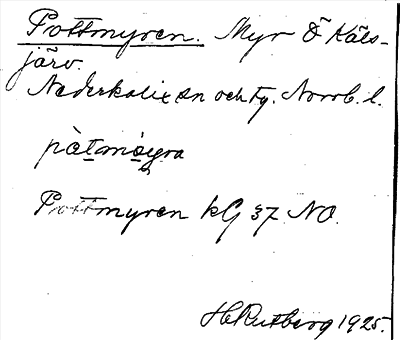 Pottmyren. Myr Ö Käls-
järv.
Nederkalix sn och tg. Norrb. l.
pòtmöyra
Pottmyren kG 37 NO.
H Rutberg 1925.